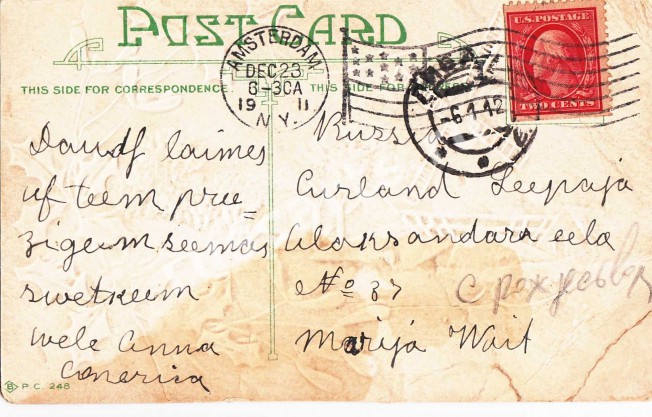 POST CARD
AMSTERDAM
DEC 23
6-30A
19 11
N.Y.
U.S. POSTAGE
TWO CENTS
-6.1.12
THIS SIDE FOR CORRESPONDENCE.
THIS SIDE FOR
Daudf laimes
uf teem pree=
zigeem seemas
swetkeem
wele Anna
America
Russia
Curland Leepaja
Aleksandara eela
No 37
Marija Wait
с рождеством
P.C. 248